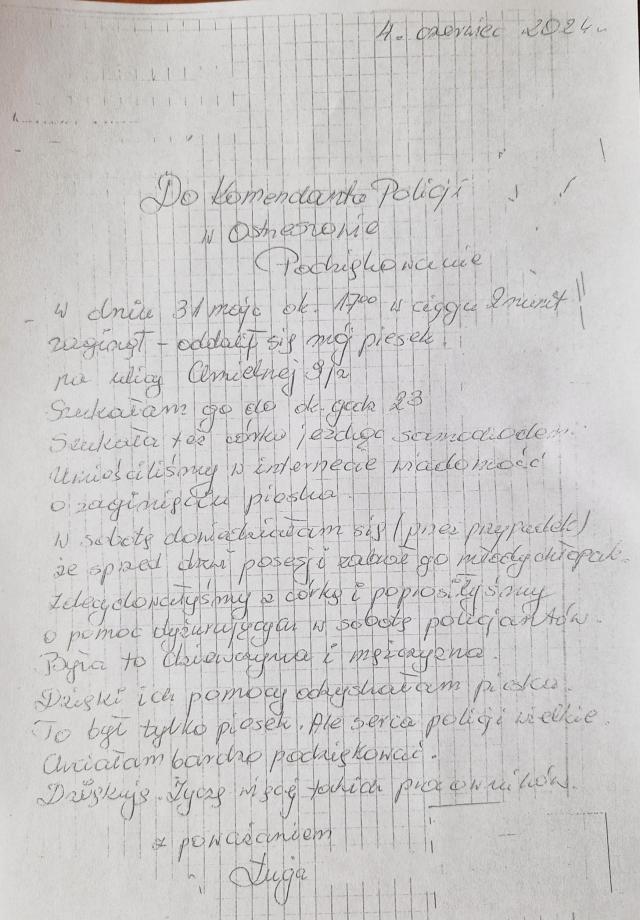 4. czerwiec 2024
Do Komendanta Policji
w Ostrzeszowie
Podziękowanie
W dniu 31 maja ok. 17⁰⁰ w ciągu 2 minut
zaginął - oddalił się mój piesek
na ulicy Chmielnej 9/2
Szukałam go do ok. godz 23
Szukała też córka jeżdżąc samochodem.
Umieściliśmy w internecie wiadomość
o zaginięciu pieska.
W sobotę dowiedziałam się (przez przypadek)
że sprzed drzwi posesji zabrał go młody chłopak.
Zdecydowałyśmy z córką i poprosiłyśmy
o pomoc dyżurujących w sobotę policjantów.
Była to dziewczyna i mężczyzna.
Dzięki ich pomocy odzyskałam pieska.
To był tylko piesek. Ale serca policji wielkie.
Chciałam bardzo podziękować.
Dziękuję. Życzę więcej takich pracowników.
z poważaniem